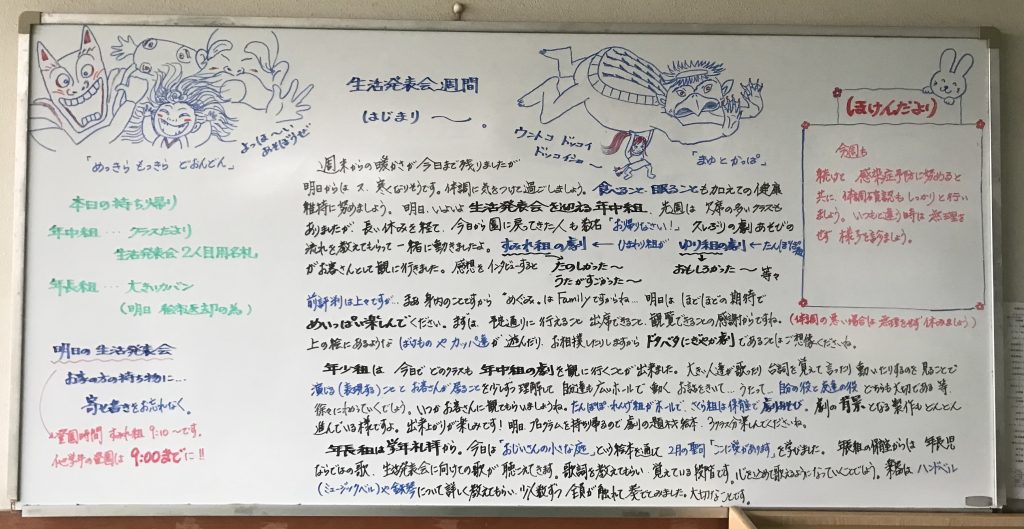 生活発表会週間
はじまり 〜。
よっほ〜い
あそぼうぜ
「めっきら もっきら どおんどん」
ウントコ ドッコイ
ドッコイショ〜
「まゆとかっぱ」
本日の持ち帰り
年中組… クラスだより
生活発表会2く目用名札
年長組… 大きいカバン
(明日 絵本返却の為)
明日の生活発表会
お家の方の持ち物に…
寄せ書きをお忘れなく。
登園時間 すみれ組 9:10〜です。
他学年の登園は 9:00までに!!
週末からの暖かさが今日まで残りましたが
明日からは 又、寒くなりそうです。体調に気をつけて過ごしましょう。食べること 眠ることも加えての健康
維持に努めましょう。明日、いよいよ 生活発表会を迎える年中組、先週は 欠席の多いクラスも
ありましたが、長い休みを経て、今日から園に戻ってきた人も数名「お帰りなさい!」久しぶりの劇あそびの
流れを教えてもらって 一緒に動きましたよ。すみれ組の劇 ← ひまわり組が ゆり組の劇 ← たんぽぽ組
がお客さんとして観に行きました。感想をインタビューすると たのしかった〜 おもしろかった〜 等々
うたがすごかった〜
前評判は上々ですが… まぁ身内のことですから "めぐみ"は Familyですからね… 明日は ほどほどの期待で
めいっぱい楽しんでください。まずは、予定通りに行えること 出席できること、観覧できることの感謝からですね。
上の絵にあるような ばけものや カッパ達が 遊んだり、お相撲したりしますから ドタバタにぎやか劇であることはご想像くださいね。
年少組は 今日で どのクラスも 年中組の劇を 観に行くことが 出来ました。大きい人達が歌ったり 台詞を覚えて言ったり 動いたりするのを見ることで
演じる(表現する)ことと お客さんが居ることを少しずつ理解して 自分達も広いホールで 動く お話をきいて… うたって… 自分の役と友達の役 どちらも大切である 等
徐々にわかっていくでしょう。いつかお客さんに観てもらいましょうね。たんぽぽ れんげ組がホールで、さくら組は保育室で 劇あそび。劇の背景となる製作もどんどん
進んでいる様ですよ。出来上りが楽しみです! 明日、プログラムを持ち帰るので 劇の題材の絵本、3クラス分楽しんでくださいね。
年長組は 学年礼拝から。今日は「おじいさんの小さな庭」という絵本を通して 2月の聖句「ここに愛があります」を学びました。年長組の保育室からは 年長児
ならではの歌、生活発表会に向けての歌が 聴こえてきます。歌詞を教えてもらい 覚えている段階です。心をこめて歌えるようになっていくことでしょう。楽器は ハンドベル
(ミュージックベル)や鉄琴について詳しく教えてもらい 少人数ずつ 全員が触れて 奏でてみました。大切なことです。
ほけんだより
今週も
続けて 感染症予防に努めると
共に、体調確認もしっかりと行い
ましょう。いつもと違う時は 無理を
せず 様子を診ましょう。
(体調の悪い場合は 無理をせず 休みましょう)